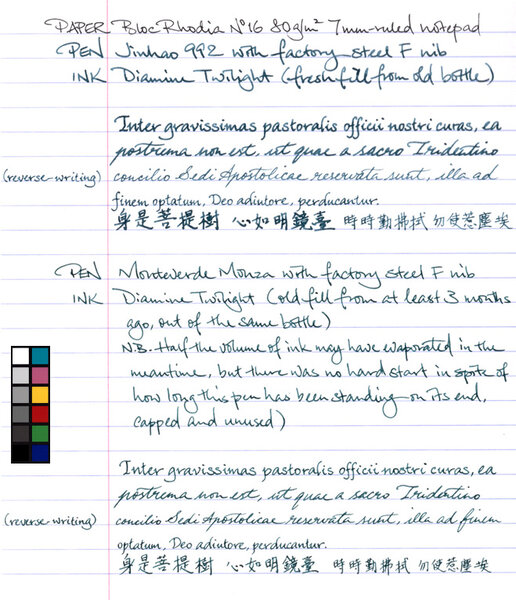 PAPER Bloc Rhodia Nº16 80g/m² 7mm-ruled notepad
PEN Jinhao 992 with factory steel F nib
INK Diamine Twilight (fresh fill from old bottle)
Inter gravissimas pastoralis officii nostri curas, ea
postrema non est, ut quae a sacro Tridentino
(reverse-writing) concilio Sedi Apostolicae reservata sunt, illa ad
finem optatum, Deo adiutore, perducantur.
身是菩提樹 心如明鏡臺 時時勤拂拭 勿使惹塵埃
PEN Monteverde Monza with factory steel F nib
INK Diamine Twilight (old fill from at least 3 months
ago, out of the same bottle)
N.B. Half the volume of ink may have evaporated in the
meantime, but there was no hard start in spite of
how long this pen has been standing on its end,
capped and unused)
Inter gravissimas pastoralis officii nostri curas, ea
postrema non est, ut quae a sacro Tridentino
(reverse writing) concilio Sedi Apostolicae reservata sunt, illa ad finem
optatum, Deo adiutore, perducantur.
身是菩提樹 心如明鏡臺 時時勤拂拭 勿使惹塵埃